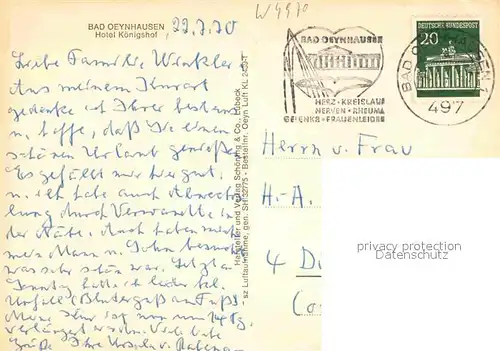 BAD OEYNHAUSEN 22.7.70
Hotel Königshof
W4970
Liebe Familie Winkler!
Aus meinem Kurort
gedenke ich Ihrer bestens
u. hoffe, daß Sie einen
schönen Urlaub genießen.
Es gefällt mir hier gut
u. ich habe auch Abwechs-
lung durch Verwandte in
der Nähe. Auch haben mich
mein Mann u. Sohn besucht
was sehr schön war. Letzten
Sonntag hatte ich leider
Unfall (Bluterguß am Fuß)
Meine Kur ist nun um 14 Tg.
verlängert worden. Viele liebe
Grüße Ihre Ursula v.
Hersteller und Verlag Schöning & Co., Lübeck
sz Luftaufnahme, gen. SH 32775 - Bestellnr. Oeyn Luft KL 2450-1
BAD OEYNHAUSEN
HERZ · KREISLAUF
NERVEN · RHEUMA
GELENKE · FRAUENLEIDEN
DEUTSCHE BUNDESPOST
20
BAD OEYNHAUSEN 1
497
Herrn u. Frau
H.-A.
4 D
privacy protection
Datenschutz